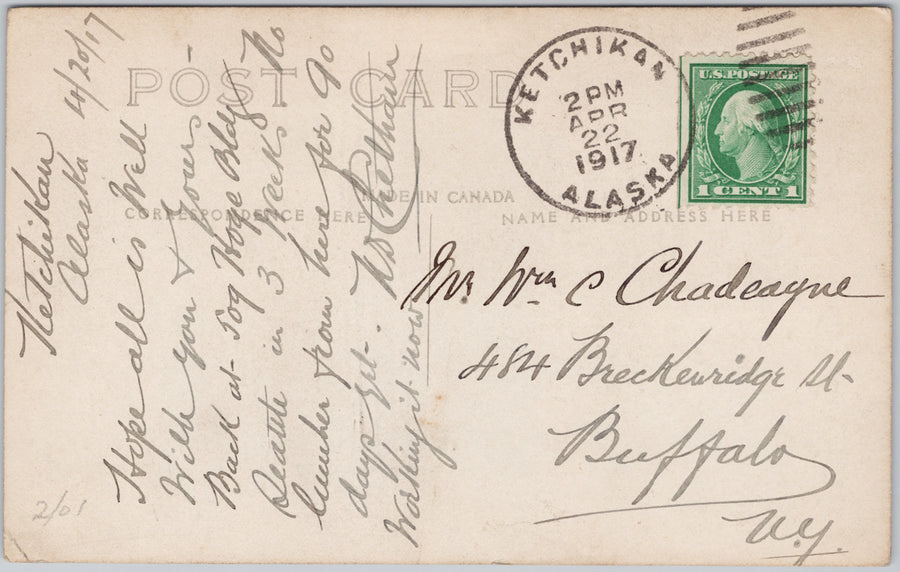 POST CARD
MADE IN CANADA
CORRESPONDENCE HERE
NAME AND ADDRESS HERE
KETCHIKAN
2 PM
APR
22
1917
ALASKA
U.S. POSTAGE
1 CENT 1
Ketchikan
Alaska 4/20/17
Hope all is Well
With you & Yours -
Back at 509 Hoge Bldg
Seattle in 3 weeks No
lumber from here for 90
days yet.
Working it now
Mr. Wm C Chadeayne
484 Breckenridge St-
Buffalo
N.Y.
2/01